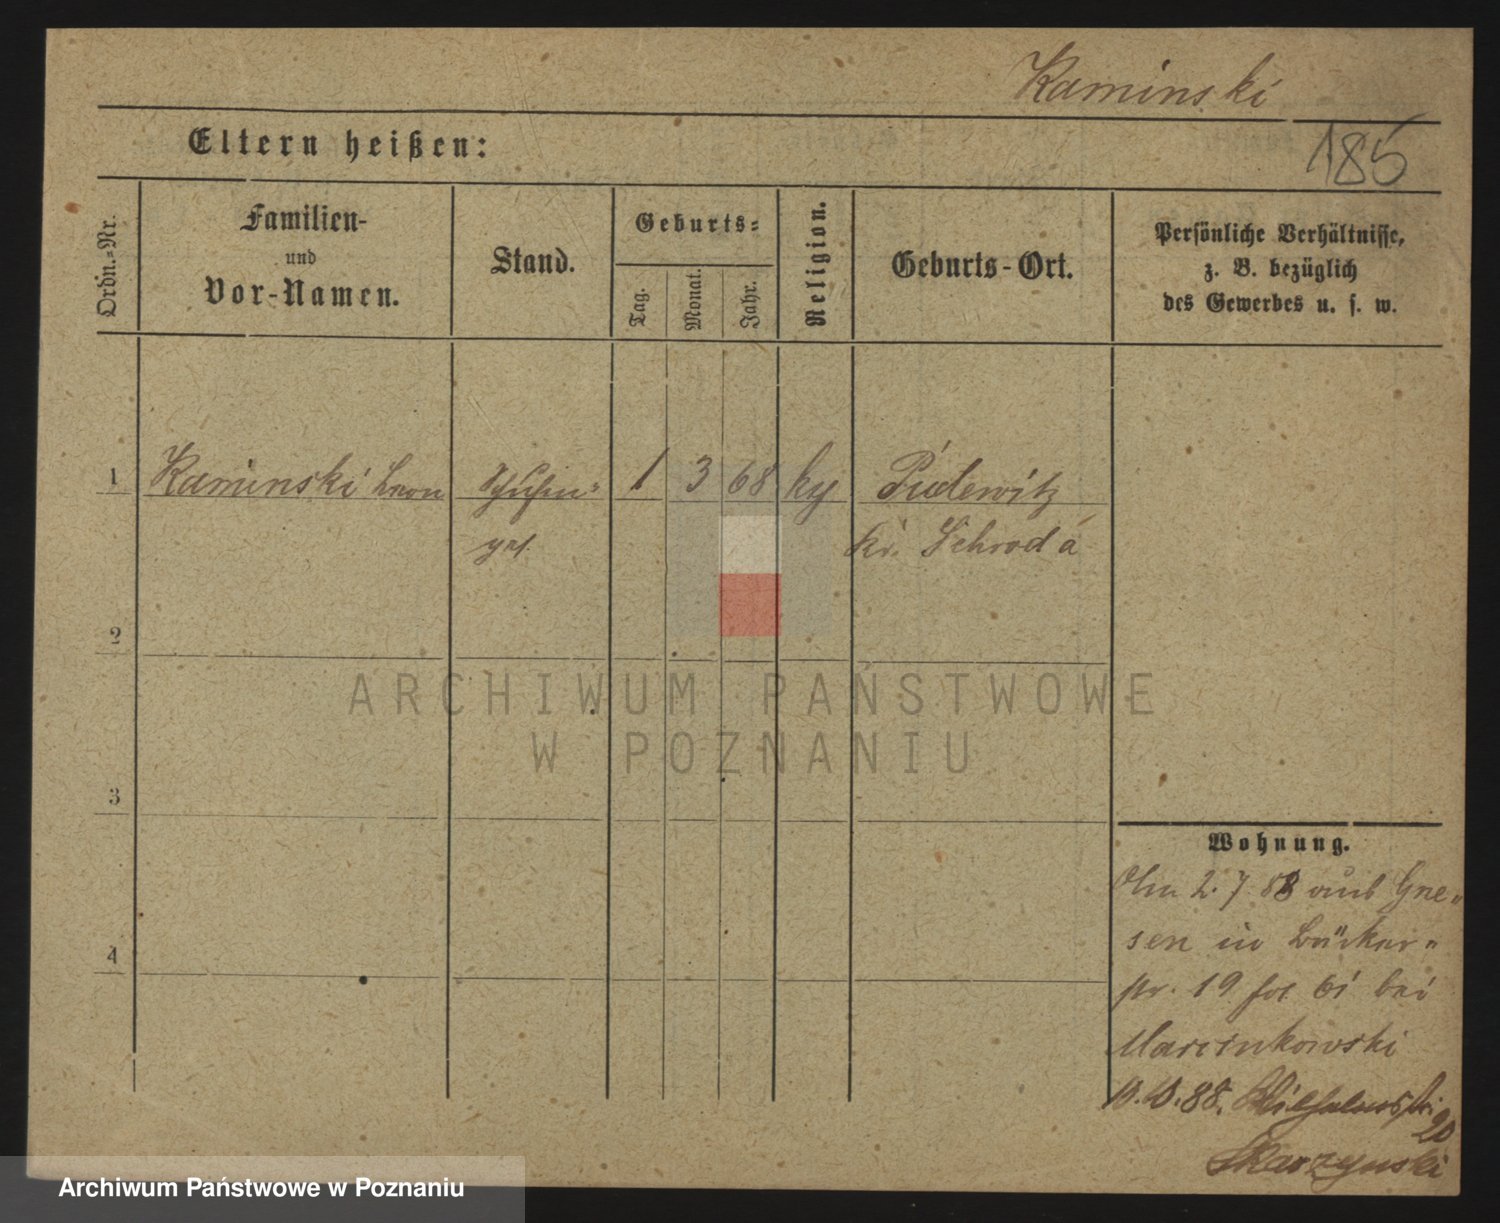 Kaminski
185
Eltern heißen:
Ordn.-Nr.
Familien-
und
Vor-Namen.
Stand.
Geburts-
Tag.
Monat.
Jahr.
Religion.
Geburts-Ort.
Persönliche Verhältnisse,
z. B. bezüglich
des Gewerbes u. s. w.
1 Kaminski Leon 1 3 68 Pudewitz
Kr. Schroda
2
ARCHIWUM PAŃSTWOWE
W POZNANIU
3
4
Wohnung.
2.7.88 aus Gne-
sen in
19 bei
Marcinkowski
88.
20
Skarzynski
Archiwum Państwowe w Poznaniu